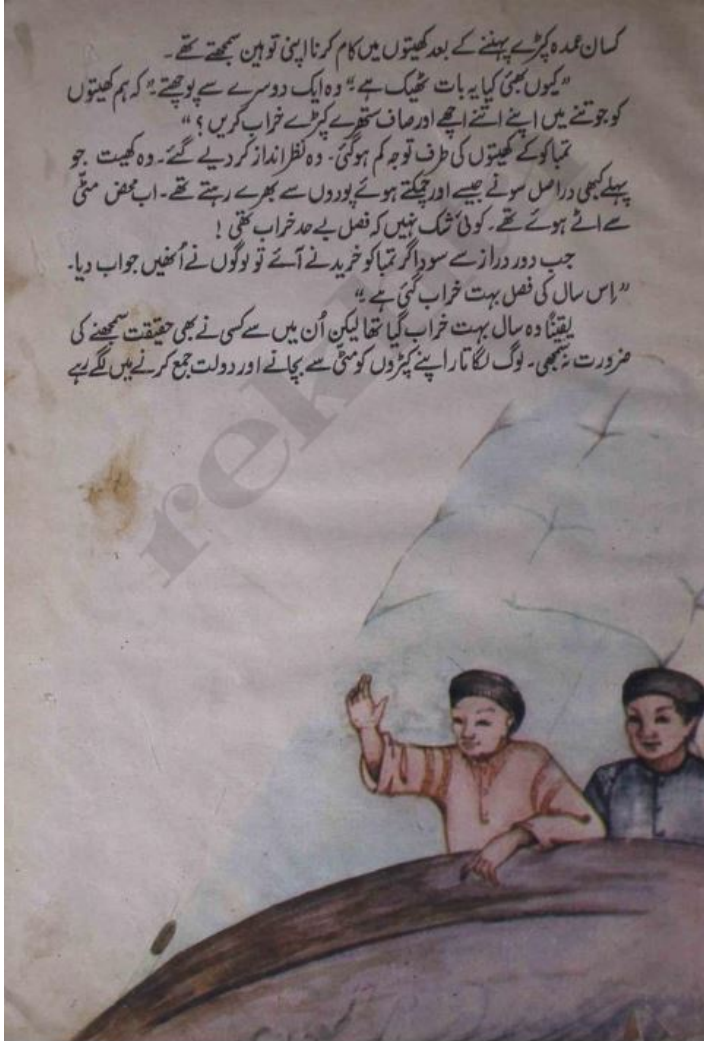 کسان عمدہ کپڑے پہننے کے بعد کھیتوں میں کام کرنا اپنی توہین سمجھتے تھے۔
"کیوں بھئی کیا یہ بات ٹھیک ہے" وہ ایک دوسرے سے پوچھتے "کہ ہم کھیتوں
کو جوتنے میں اپنے اتنے اچھے اور صاف ستھرے کپڑے خراب کریں ؟"
تمباکو کے کھیتوں کی طرف توجہ کم ہوگئی۔ وہ نظر انداز کر دیے گئے۔ وہ کھیت جو
پہلے کبھی دراصل سونے جیسے اور چمکتے ہوئے پودوں سے بھرے رہتے تھے۔ اب محض مٹی
سے اٹے ہوئے تھے۔ کوئی شک نہیں کہ فصل بے حد خراب تھی !
جب دور دراز سے سوداگر تمباکو خریدنے آئے تو لوگوں نے اُنھیں جواب دیا۔
"اِس سال کی فصل بہت خراب گئی ہے"
یقیناً وہ سال بہت خراب گیا تھا لیکن اُن میں سے کسی نے بھی حقیقت سمجھنے کی
ضرورت نہ سمجھی۔ لوگ لگاتار اپنے کپڑوں کو مٹی سے بچانے اور دولت جمع کرنے میں لگے رہے
rekhta